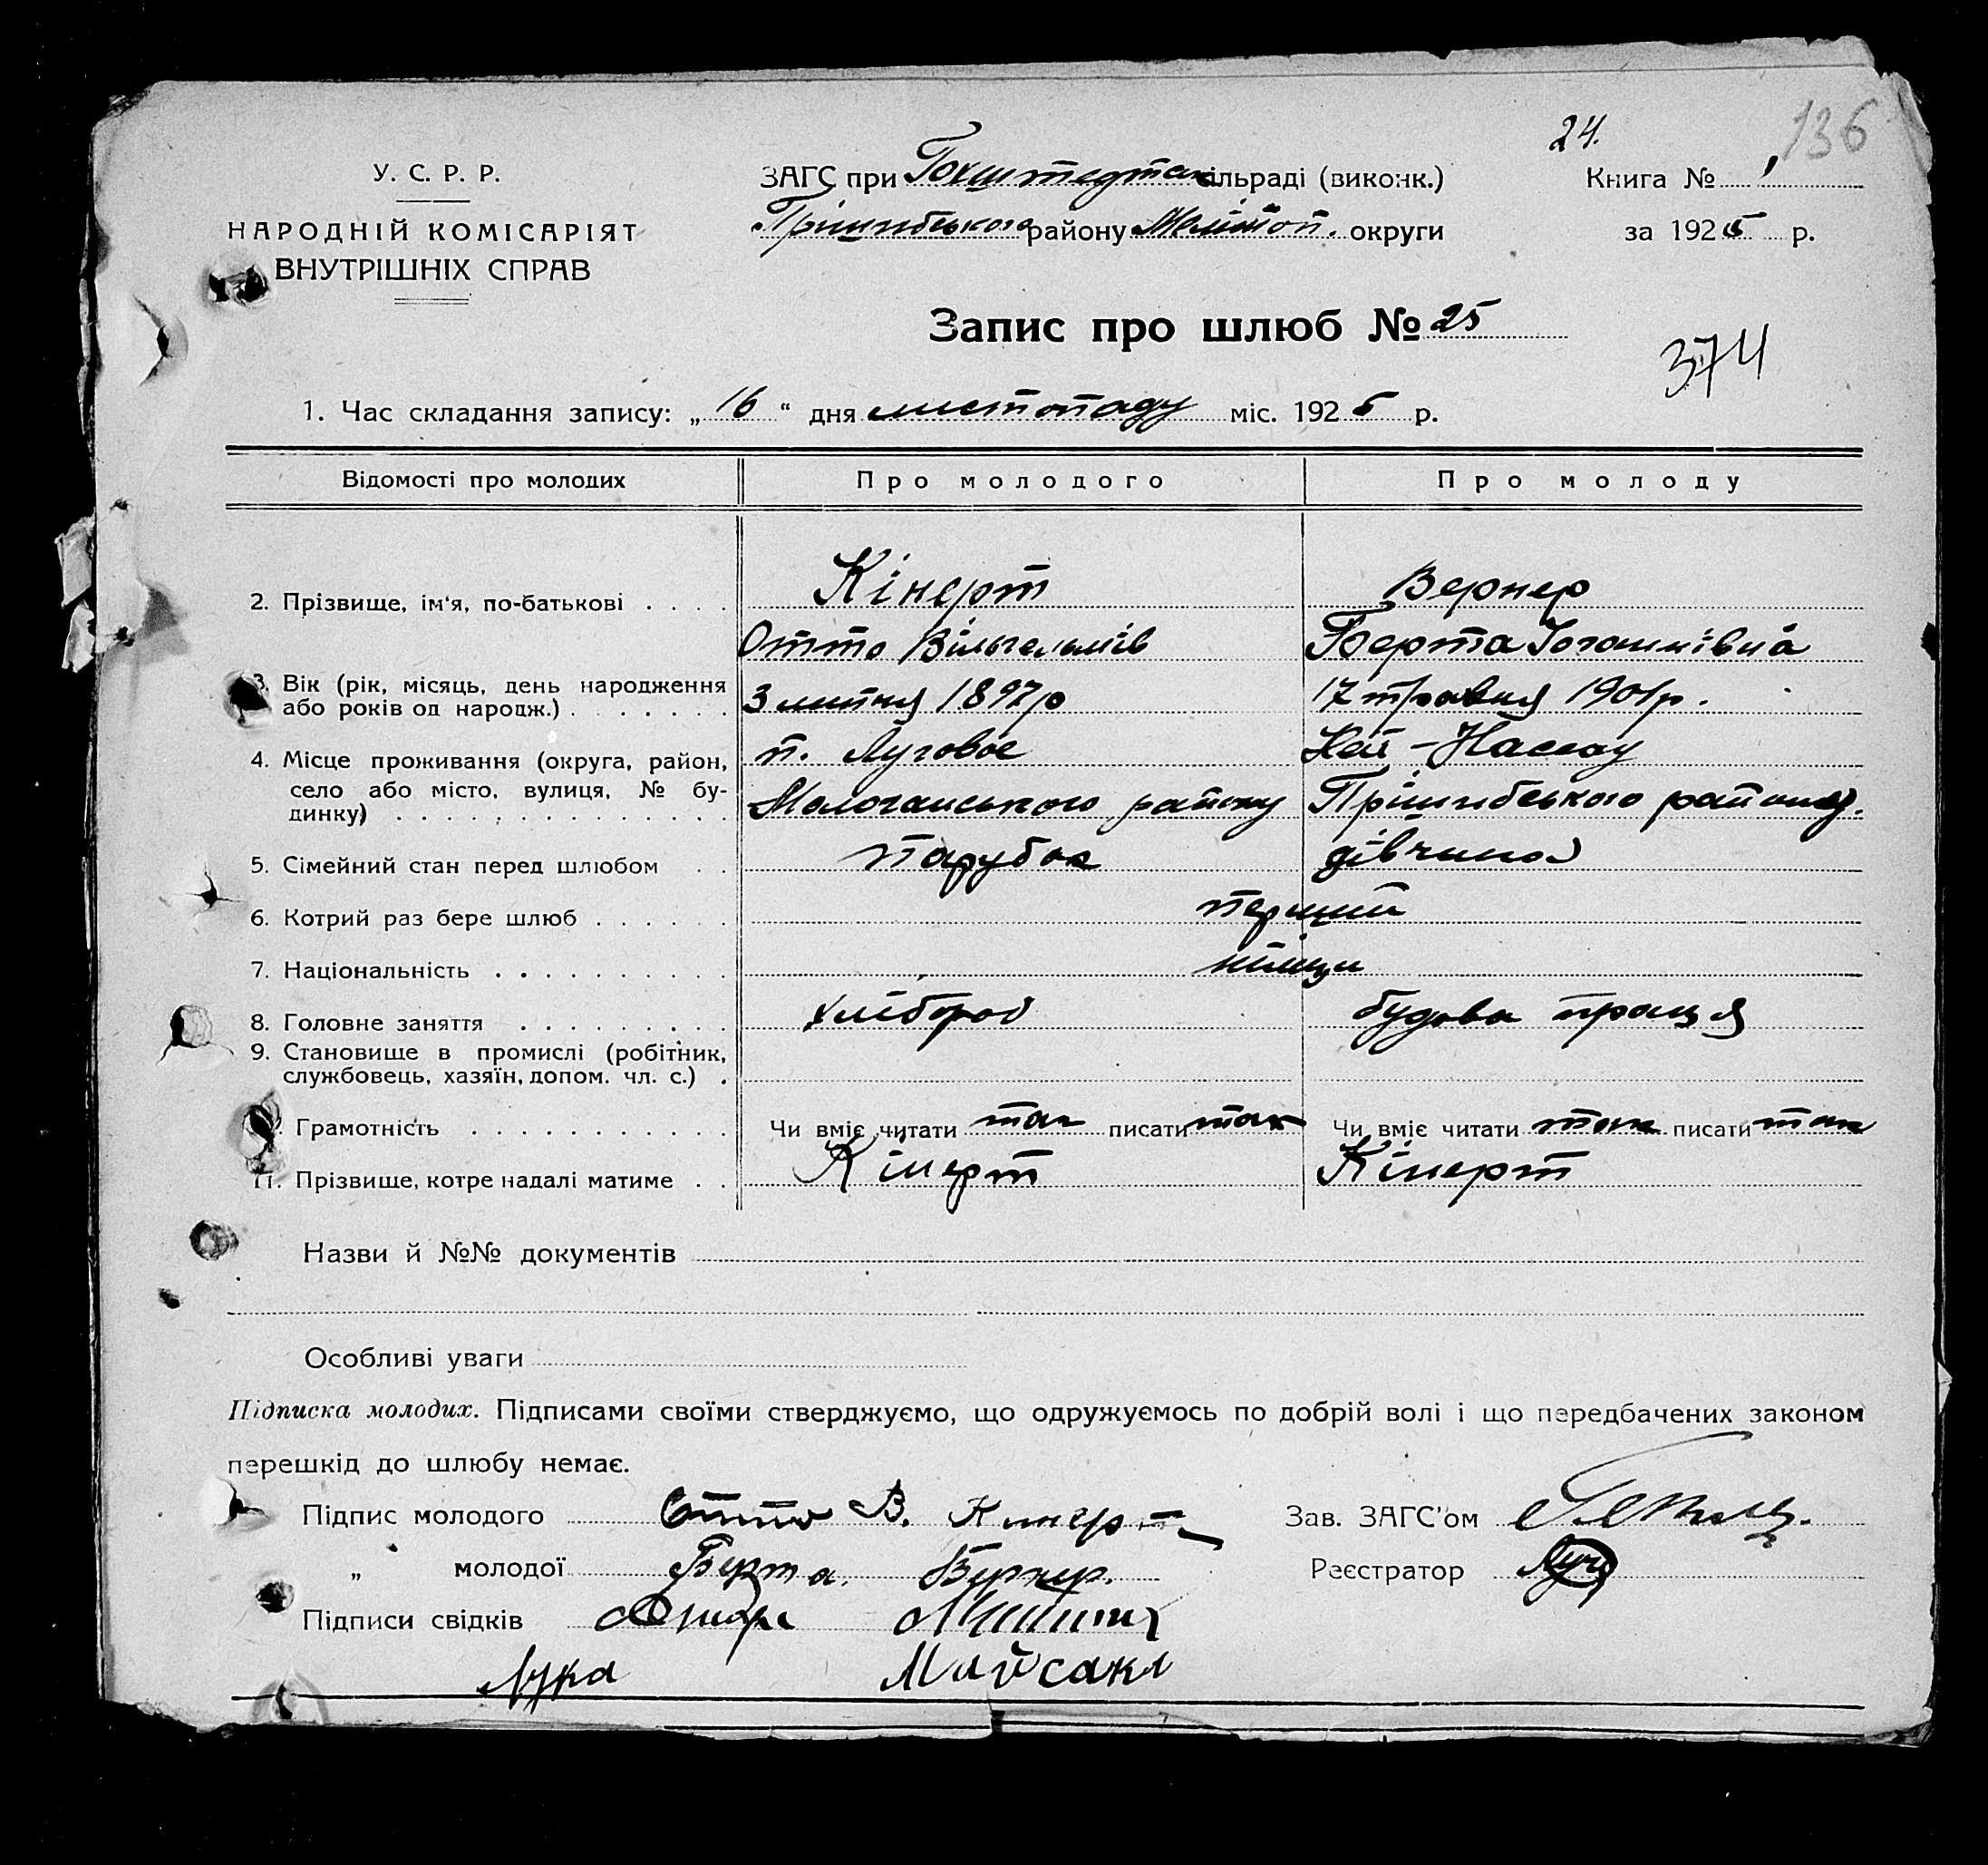 24.
136
У. С. Р. Р.
ЗАГС при Гохштедтськ сільраді (виконк.)
Книга № 1
НАРОДНІЙ КОМІСАРІЯТ
Прішибського району Мелітоп. округи
за 1925 р.
ВНУТРІШНІХ СПРАВ
Запис про шлюб № 25
374
1. Час складання запису: „ 16 “ дня листопаду міс. 1925 р.
Відомості про молодих Про молодого Про молоду
2. Прізвище, ім'я, по-батькові . . . . Кінерт Вернер
Отто Вільгельмів Берта Іоганнівна
3. Вік (рік, місяць, день народження 3 липня 1897р 17 травня 1901р.
або років од народж.) . . . . . . .
4. Місце проживання (округа, район, п. Луговое Ней-Нассау
село або місто, вулиця, № бу- Молочанського району Прішибського району.
динку) . . . . . . . . . . . . . .
5. Сімейний стан перед шлюбом . . парубок дівчина
6. Котрий раз бере шлюб . . . . . . перший
7. Національність . . . . . . . . . . німци
8. Головне заняття . . . . . . . . . хлібороб будова праця
9. Становище в промислі (робітник,
службовець, хазяїн, допом. чл. с.) .
Грамотність . . . . . . . . . . . Чи вміє читати так писати так Чи вміє читати так писати так
11. Прізвище, котре надалі матиме . . Кінерт Кінерт
Назви й №№ документів
Особливі уваги
Підписка молодих. Підписами своїми стверджуємо, що одружуємось по добрій волі і що передбачених законом
перешкід до шлюбу немає.
Підпис молодого Отто В. Кинерт
Зав. ЗАГС'ом
„ молодої Берта Вернер.
Реєстратор
Підписи свідків
Майсакл